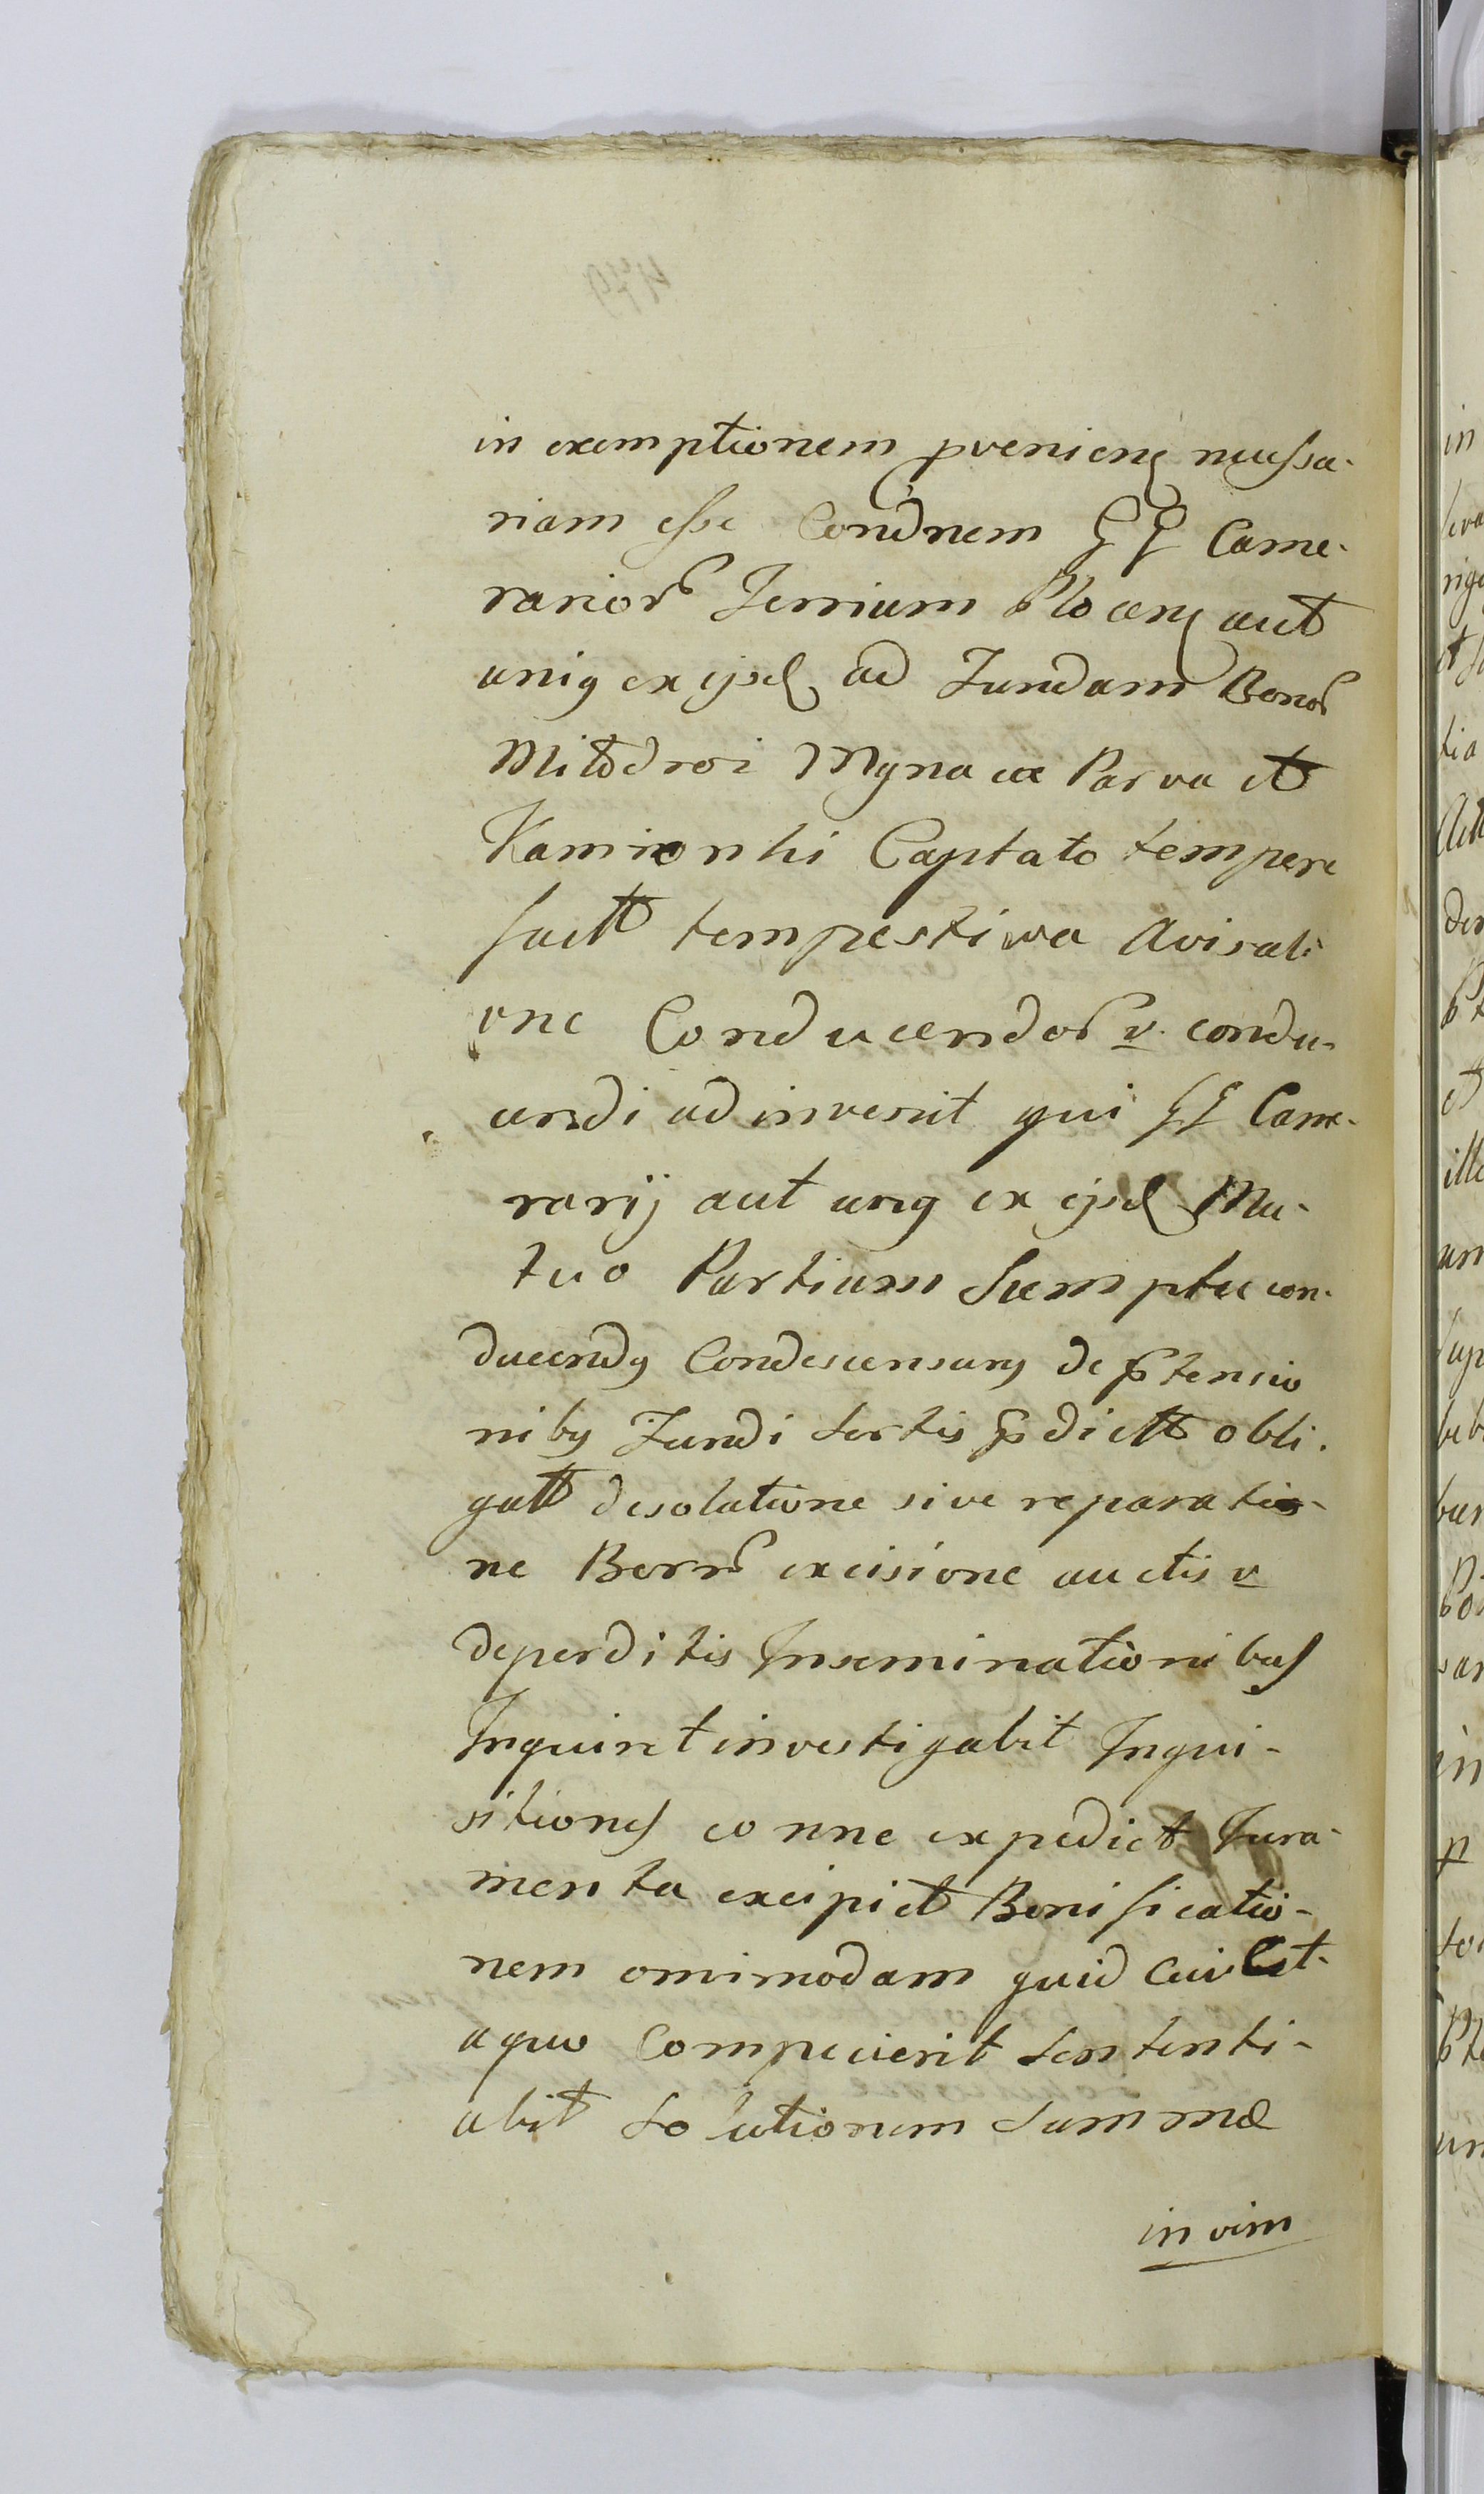 in exemptionem pvenieng necessa-
riam esse Condnem GG Came-
rarior Terrium Plocen aut
unig ex ijsd ad Fundam Bonor
Milodroi Mgna ex Parva et
Kamionki Captato tempere
factt tempestiva Avisati
one Conducendor v. condu-
cendi adinvenit qui GG Came-
rarij aut unig ex ijsd Mu-
tuo Partium Sumptu con-
ducendg Condescensurg de ptensio
nibg Fundi sortis pdictt obli-
gatt desolatione sive reparatio-
ne Bonr excisione auctis v
deperditis Inseminationibus
Inquiret investigabit Inqui-
sitiones eo nne expediet Jura-
menta excipiet Bonificatio-
nem omimodam quid cui et
a quo Compecierit sententi-
abit Solutionem Summæ
in vim